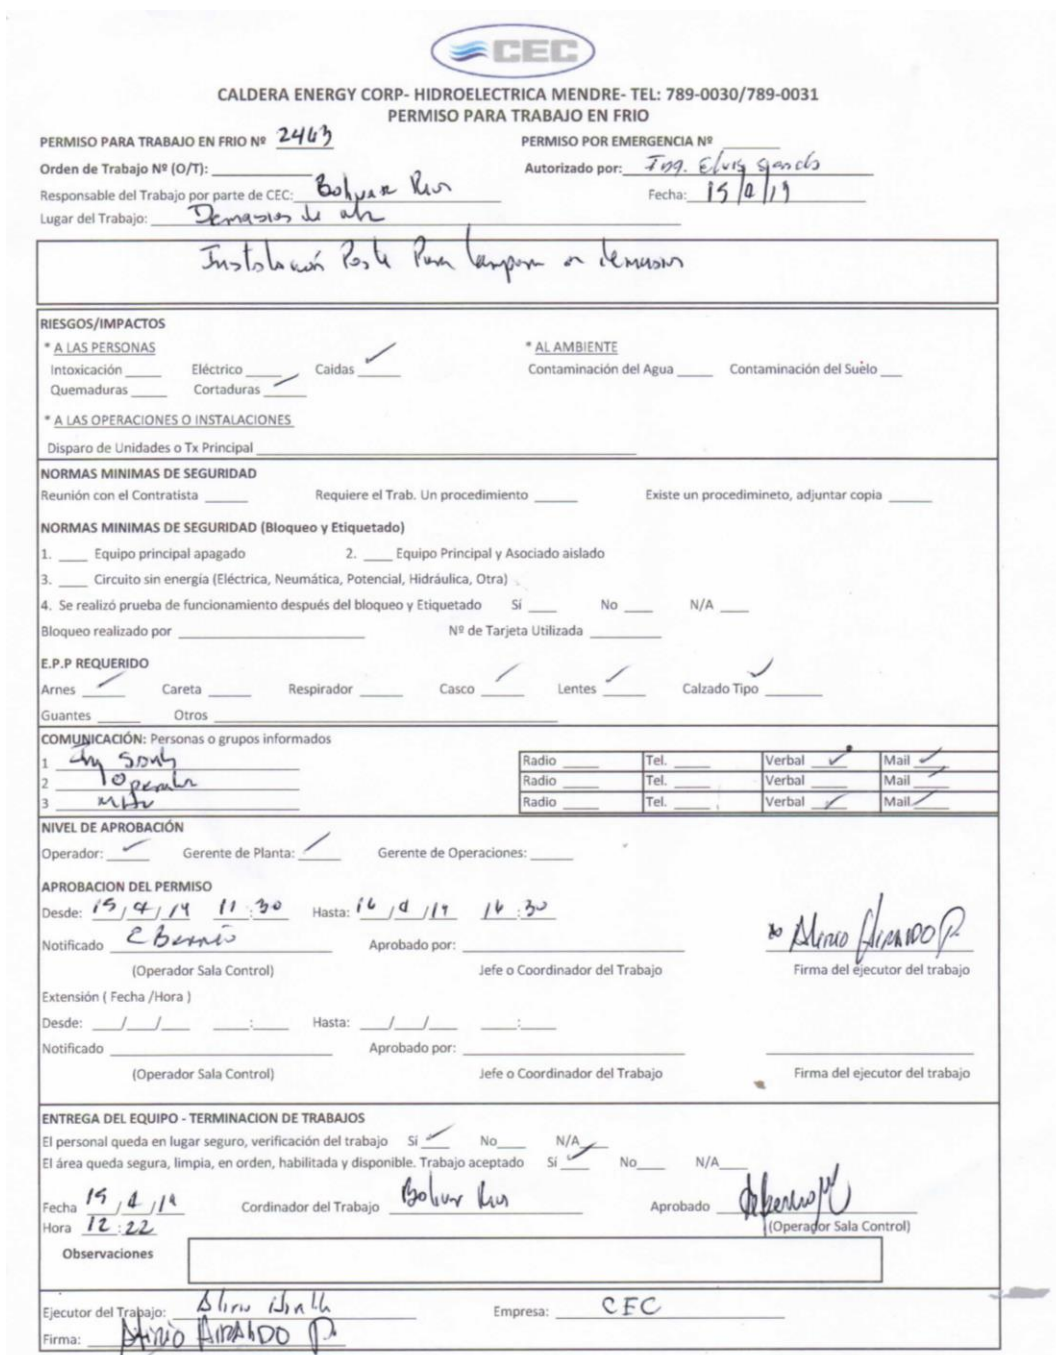 CEC
CALDERA ENERGY CORP- HIDROELECTRICA MENDRE- TEL: 789-0030/789-0031
PERMISO PARA TRABAJO EN FRIO
PERMISO PARA TRABAJO EN FRIO Nº 2463 PERMISO POR EMERGENCIA Nº
Orden de Trabajo Nº (O/T): Autorizado por: Ing. Elvis
Responsable del Trabajo por parte de CEC: Bolivar Rios Fecha: 15/4/19
Lugar del Trabajo: Demasias de
Instalación Poste Para en
RIESGOS/IMPACTOS
* A LAS PERSONAS * AL AMBIENTE
Intoxicación Eléctrico Caidas ✓ Contaminación del Agua Contaminación del Suelo
Quemaduras Cortaduras ✓
* A LAS OPERACIONES O INSTALACIONES
Disparo de Unidades o Tx Principal
NORMAS MINIMAS DE SEGURIDAD
Reunión con el Contratista Requiere el Trab. Un procedimiento Existe un procedimineto, adjuntar copia
NORMAS MINIMAS DE SEGURIDAD (Bloqueo y Etiquetado)
1. Equipo principal apagado 2. Equipo Principal y Asociado aislado
3. Circuito sin energía (Eléctrica, Neumática, Potencial, Hidráulica, Otra)
4. Se realizó prueba de funcionamiento después del bloqueo y Etiquetado Sí No N/A
Bloqueo realizado por Nº de Tarjeta Utilizada
E.P.P REQUERIDO
Arnes ✓ Careta Respirador Casco ✓ Lentes ✓ Calzado Tipo ✓
Guantes Otros
COMUNICACIÓN: Personas o grupos informados
1 Radio Tel. Verbal ✓ Mail ✓
2 Operador Radio Tel. Verbal Mail ✓
3 Radio Tel. Verbal ✓ Mail ✓
NIVEL DE APROBACIÓN
Operador: ✓ Gerente de Planta: ✓ Gerente de Operaciones:
APROBACION DEL PERMISO
Desde: 15/4/19 11:30 Hasta: 16/4/19 16:30
Notificado Aprobado por:
(Operador Sala Control) Jefe o Coordinador del Trabajo Firma del ejecutor del trabajo
Extensión ( Fecha /Hora )
Desde: __/__/__ __:__ Hasta: __/__/__ __:__
Notificado Aprobado por:
(Operador Sala Control) Jefe o Coordinador del Trabajo Firma del ejecutor del trabajo
ENTREGA DEL EQUIPO - TERMINACION DE TRABAJOS
El personal queda en lugar seguro, verificación del trabajo Sí ✓ No N/A
El área queda segura, limpia, en orden, habilitada y disponible. Trabajo aceptado Sí ✓ No N/A
Fecha 15/4/19 Cordinador del Trabajo Bolivar Rios Aprobado
Hora 12:22 (Operador Sala Control)
Observaciones
Ejecutor del Trabajo: Empresa: CEC
Firma: